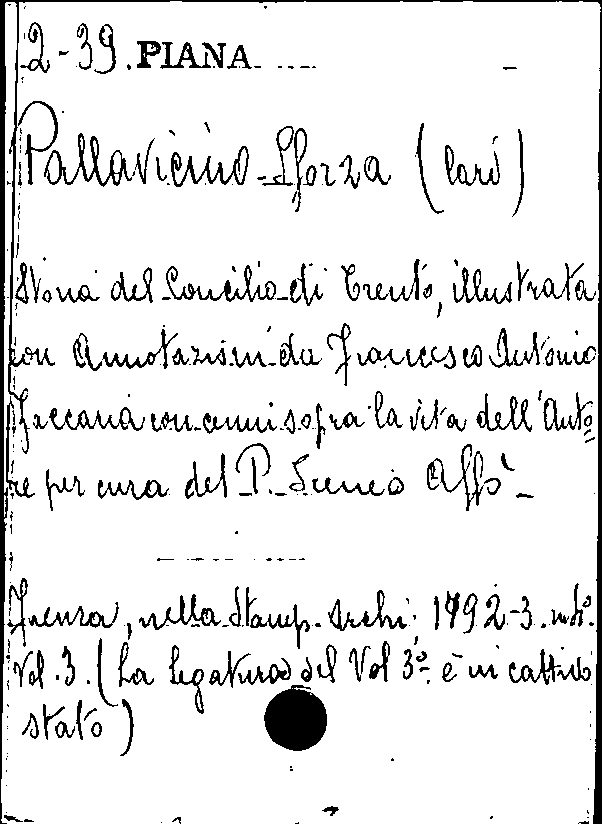 2-39. PIANA
Pallavicino-Sforza (Card)
Storia del Concilio di Trento, illustrata
con Annotazioni da Francesco Antonio
Zaccaria con cenni sopra la vita dell'Auto=
re per cura del P. Ireneo Affò -
Faenza, nella Stamp. Archi. 1792-3. in 4º.
Vol. 3. (La legatura del Vol 3º. è in cattivo
stato)